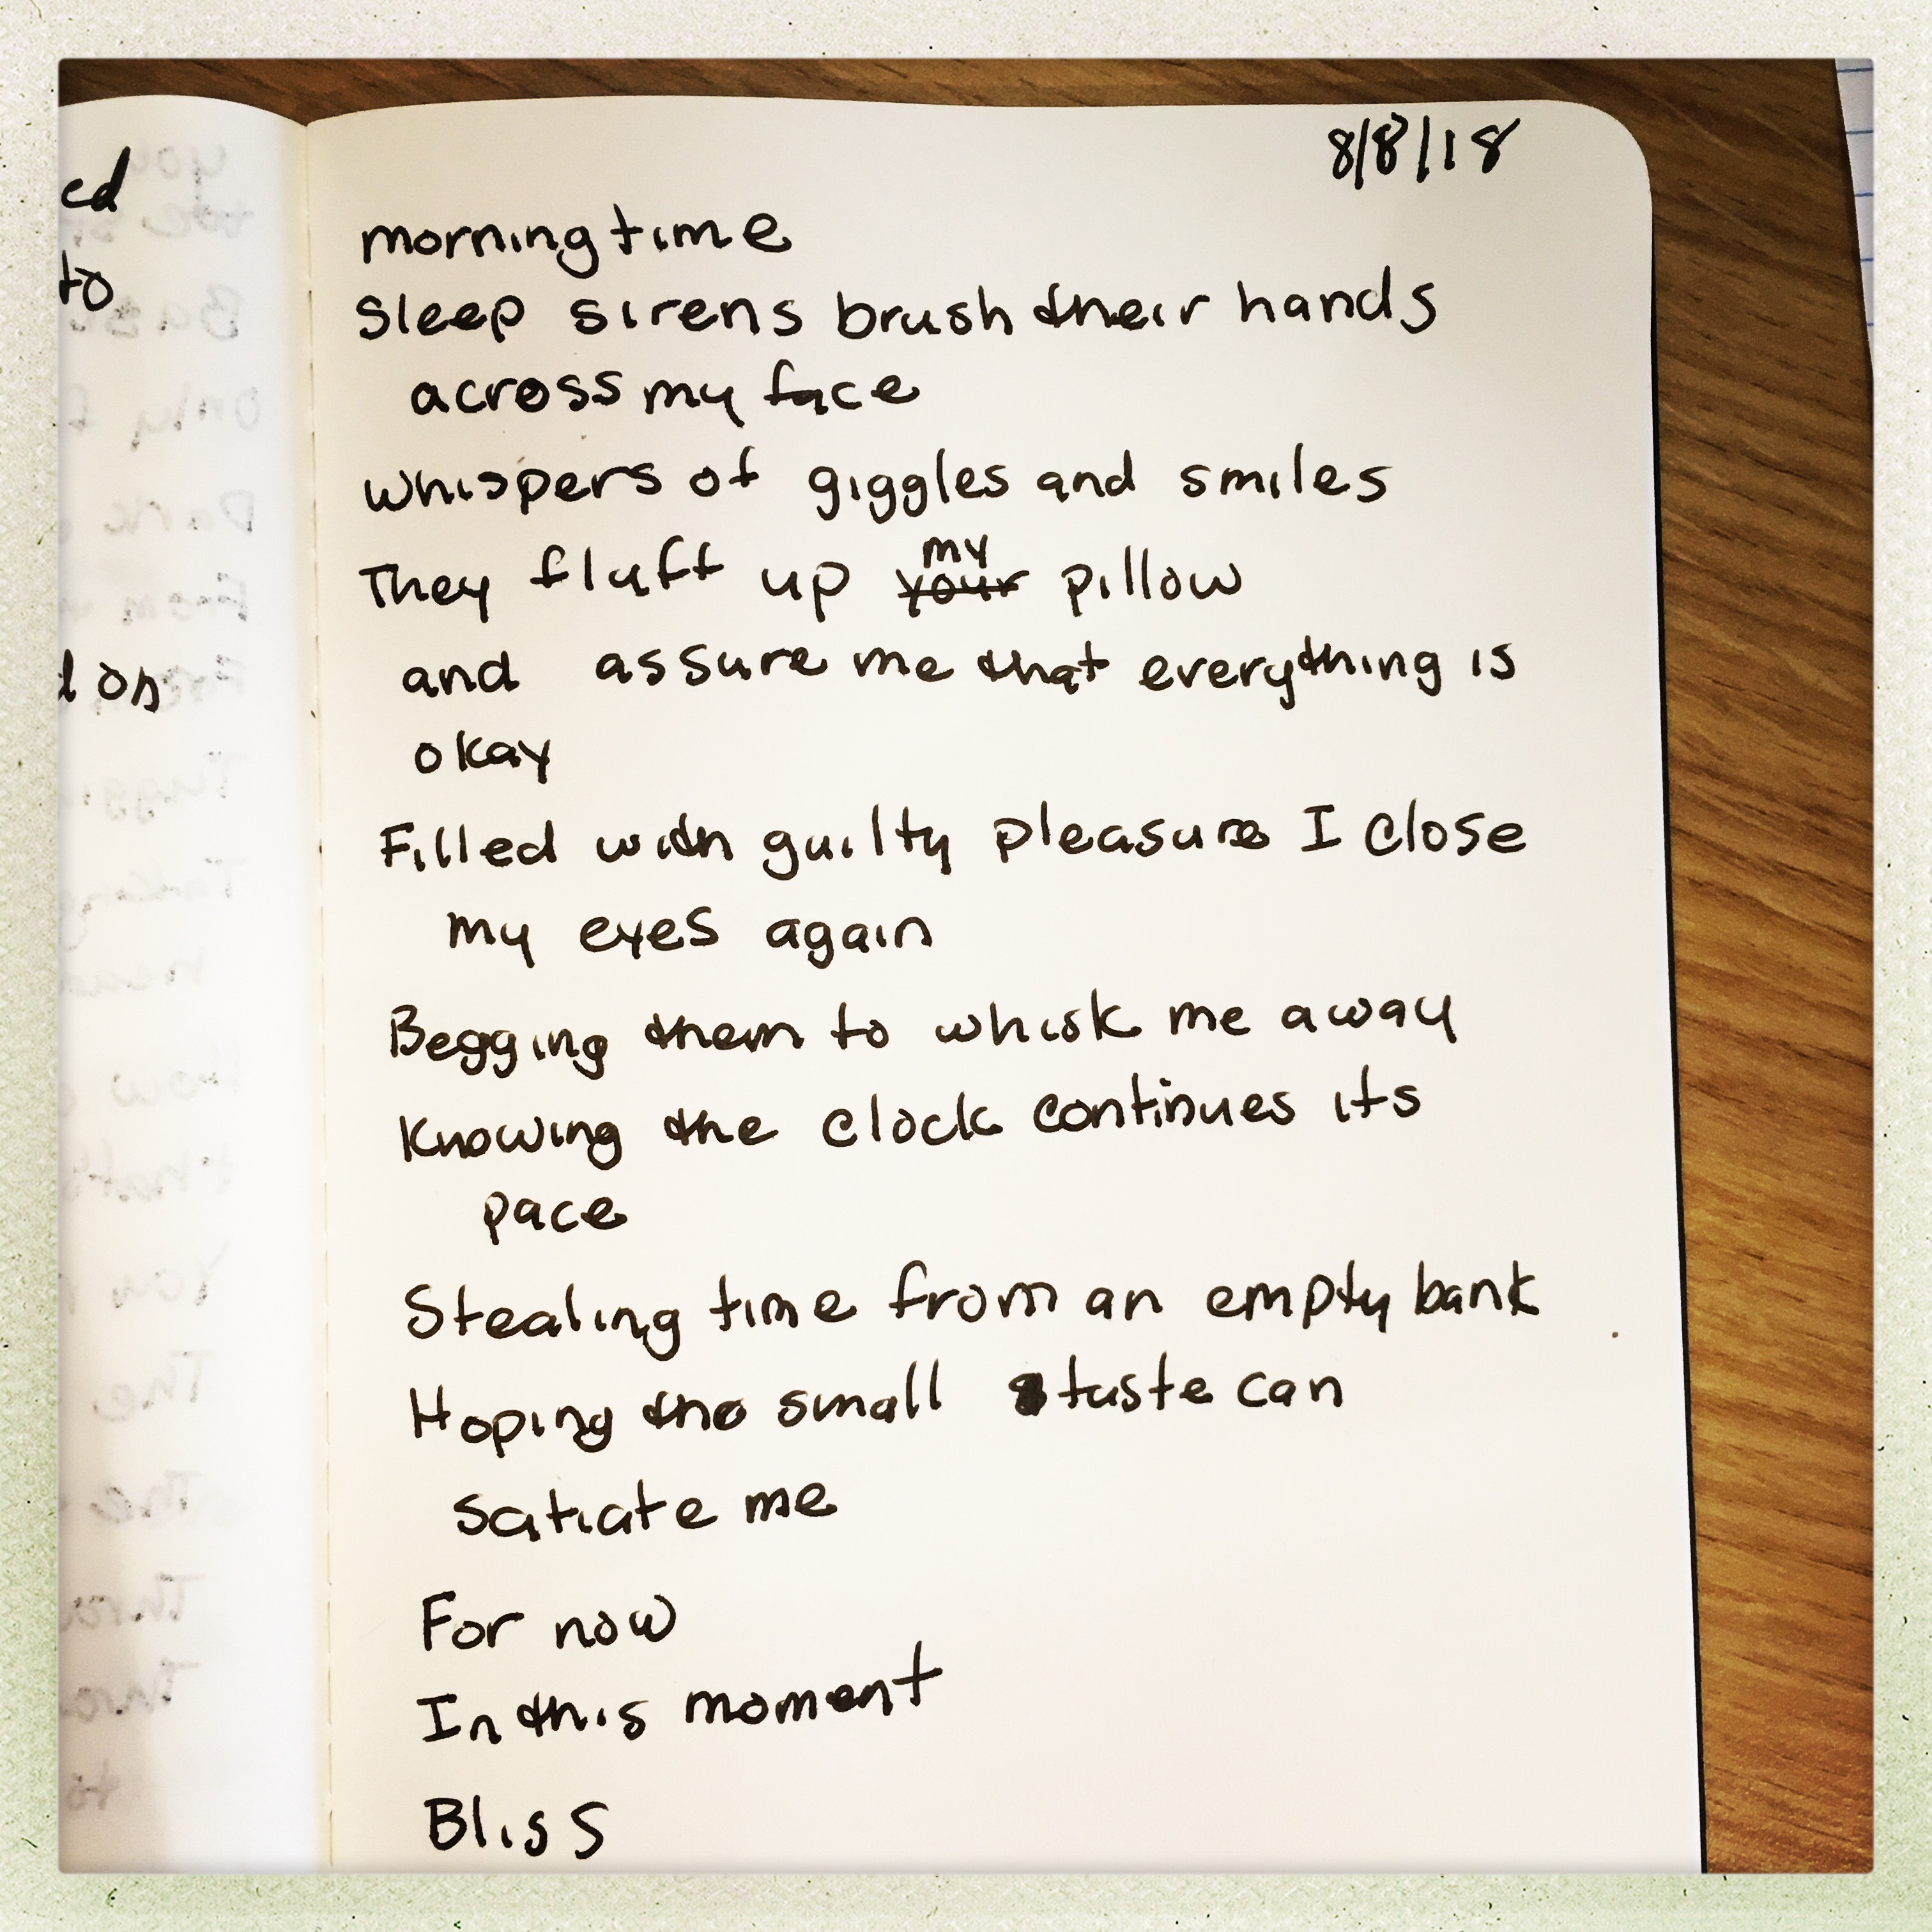 cd
to
d on
8/8/18
morning time
Sleep sirens brush their hands
across my face
whispers of giggles and smiles
my
They fluff up your pillow
and assure me that everything is
okay
Filled with guilty pleasure I close
my eyes again
Begging them to whisk me away
Knowing the clock continues its
pace
Stealing time from an empty bank
Hoping the small taste can
satiate me
For now
In this moment
Bliss